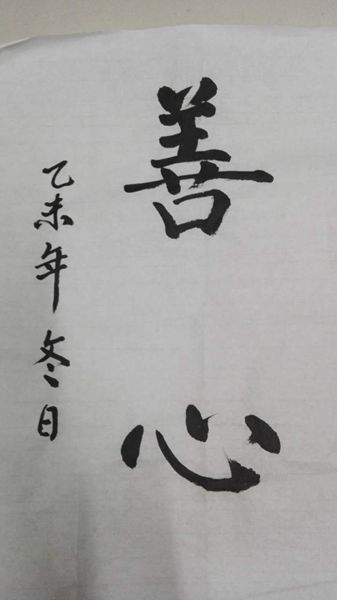 善心
乙未年冬日